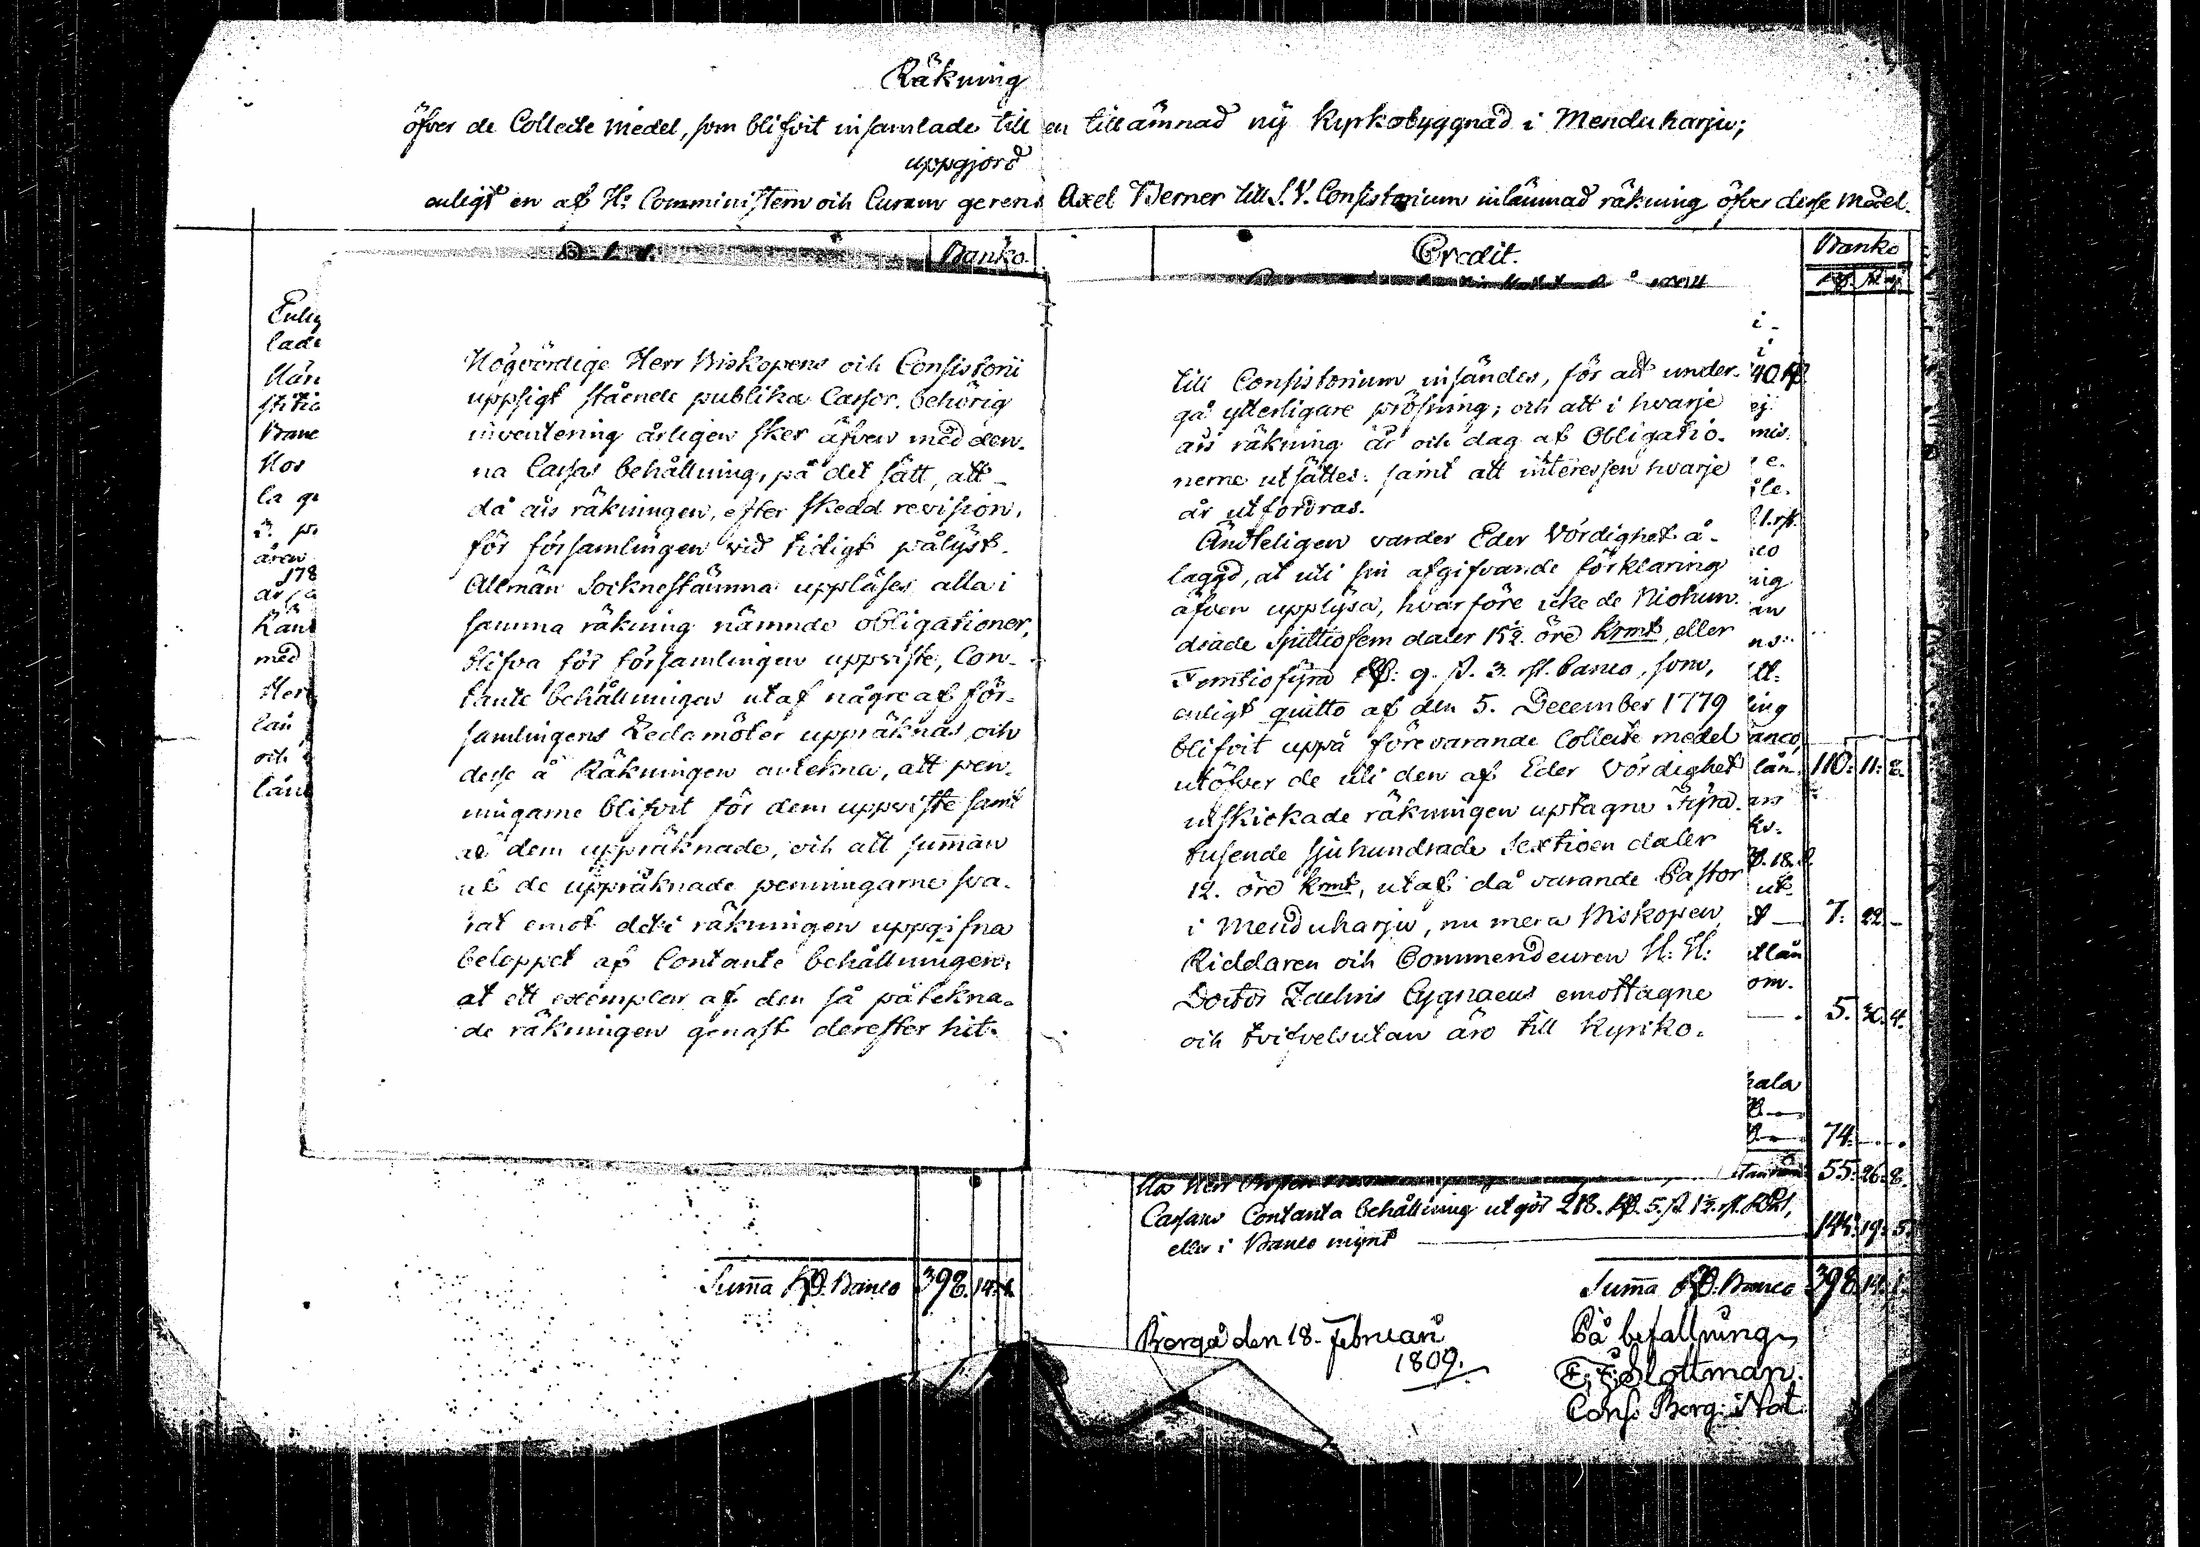 Räkning
öfver de Collecte medel, som blifvit insamlade till en tillämnad ny kyrkobyggnad i Menduharju;
uppgjord
enligt en af Hr Comministern och Curam gerens Axel Berner till S. V. Consistorium inlämnad räkning öfver desse medel.
Banko
Credit.
Banko
Högvördige Herr Biskopens och Consistorii
uppsigt stående publika Cassor behörig
inventering årligen sker äfven med den-
na Cassas behållning, på det sätt, att
då års räkningen, efter skedd revision,
för församlingen vid tidigt pålyst
Allmän Socknestämma uppläses, alla i
samma räkning nämnde obligationer,
blifva för församlingen uppviste, Con-
tante behållningen utaf någre af för-
samlingens Ledamöter uppräknas, och
desse å Räkningen antekna, att pen-
ningarne blifvit för dem uppviste samt
af dem uppräknade, och att summan
af de uppräknade penningarne sva-
rat emot det i räkningen uppgifna
beloppet af Contante behållningen;
at ett exemplar af den så påtekna-
de räkningen genast derefter hit-
till Consistorium insändes, för att under-
gå ytterligare pröfning; och att i hvarje
års räkning år och dag af Obligatio-
nerne utsättes: samt att intéressen hvarje
år utfordras.
Ändteligen varder Eder Vördighet å-
lagd, at uti sin afgifvande förklaring
äfven upplysa, hvarföre icke de Niohun-
drade Sjuttiofem daler 15½ öre Krmt, eller
Femtiofyra Rd: 9. s. 3. rst. banco, som,
enligt quitto af den 5. December 1779
blifvit uppå förevarande Collecte medel
utöfver de uti den af Eder Vördighet
inskickade räkningen uptagne Fyra-
tusende sjuhundrade Sextioen daler
12. öre Krmt, utaf då varande Pastor
i Menduharju, nu mera Biskopen
Riddaren och Commendeuren H: H:
Doctor Zachris Cygnaeus emottagne
och tvifvelsutan äro till Kyrko-
Enlig
lade
med
lån
och
110. 11. 8.
7. 22. –
5. 30. 4.
74. –
55. 26. 8.
Cassans Contanta behållning utgör 218. Rd. 5. s. 1½ rst. RGs,
eller i Banco mynt
144. 19. 5.
Summa Rd. Banco 398. 14. 1.
Summa Rd. Banco 398. 14. 1.
Borgå den 18. Februari
1809.
På befallning,
E. E. Slottman.
Cons. Borg: Not.